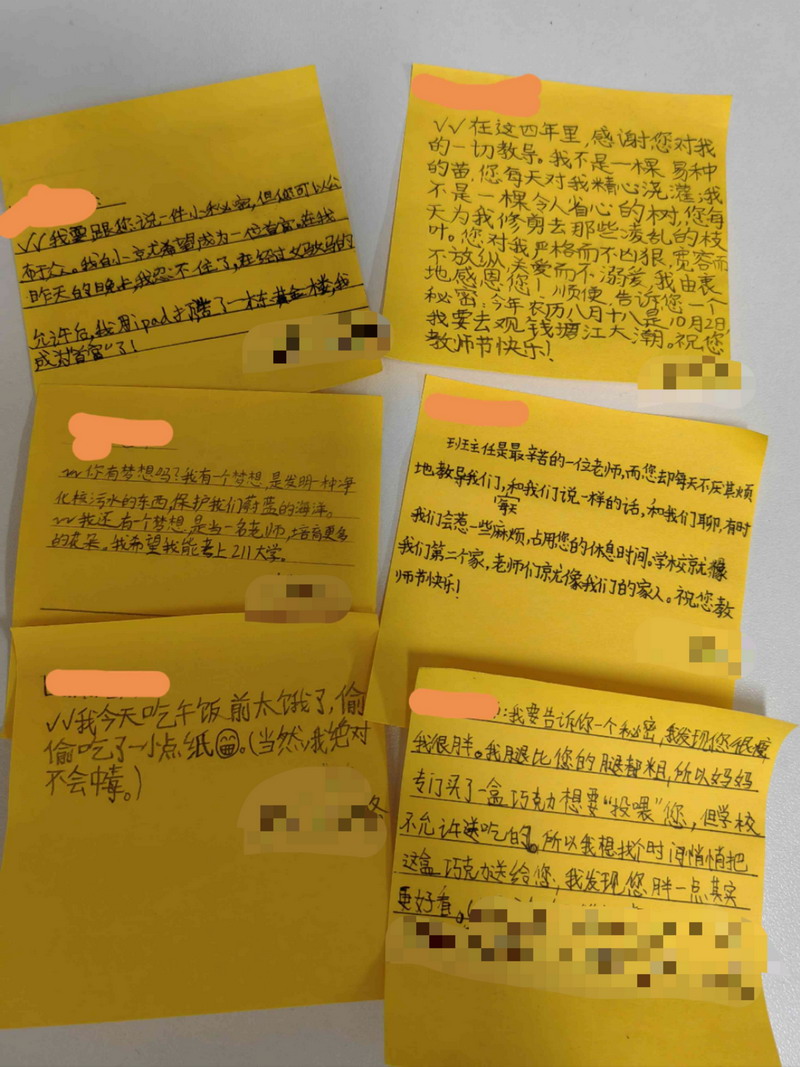 √√我要跟您说一件小秘密,但你可以公
布于众。我自小一立式希望成为一位首富。在我
昨天的晚上,我忍不住了,在经过父耿马的
允许后,我用ipad打酷了一栋黄金楼,我
成为“首富”了!
√√在这四年里,感谢您对我
的一切教导。我不是一棵易种
的苗,您每天对我精心浇灌;我
不是一棵令人省心的树,您每
天为我修剪去那些凌乱的枝
叶。您对我严格而不凶狠,宽容而
不放纵,关爱而不溺爱,我由衷
地感恩您!顺便,告诉您一个
秘密:今年农历八月十八是10月2日,
我要去观钱塘江大潮。祝您
教师节快乐!
√√你有梦想吗?我有一个梦想,是发明一种净
化核污水的东西,保护我们蔚蓝的海洋。
√√我还有个梦想是当一名老师,培育更多
的花朵。我希望我能考上211大学。
班主任是最辛苦的一位老师,而您却每天不厌其烦
地教导我们,和我们说一样的话,和我们聊,有时
每天
我们会惹一些麻烦,占用您的休息时间。学校就像
我们第二个家,老师们就像我们的家人。祝您教
师节快乐!
√√我今天吃午饭前太饿了,偷
偷吃了一小点纸😁。(当然,我绝对
不会中毒。)
冬
:我要告诉你一个秘密,我发现您很瘦
我很胖。我腿比您的腿都粗,所以妈妈
专门买了一盒巧克力想要“投喂”您,但学校
不允许送吃的。所以我想找个时间悄悄把
这盒巧克力送给您;我发现您胖一点其实
更好看。